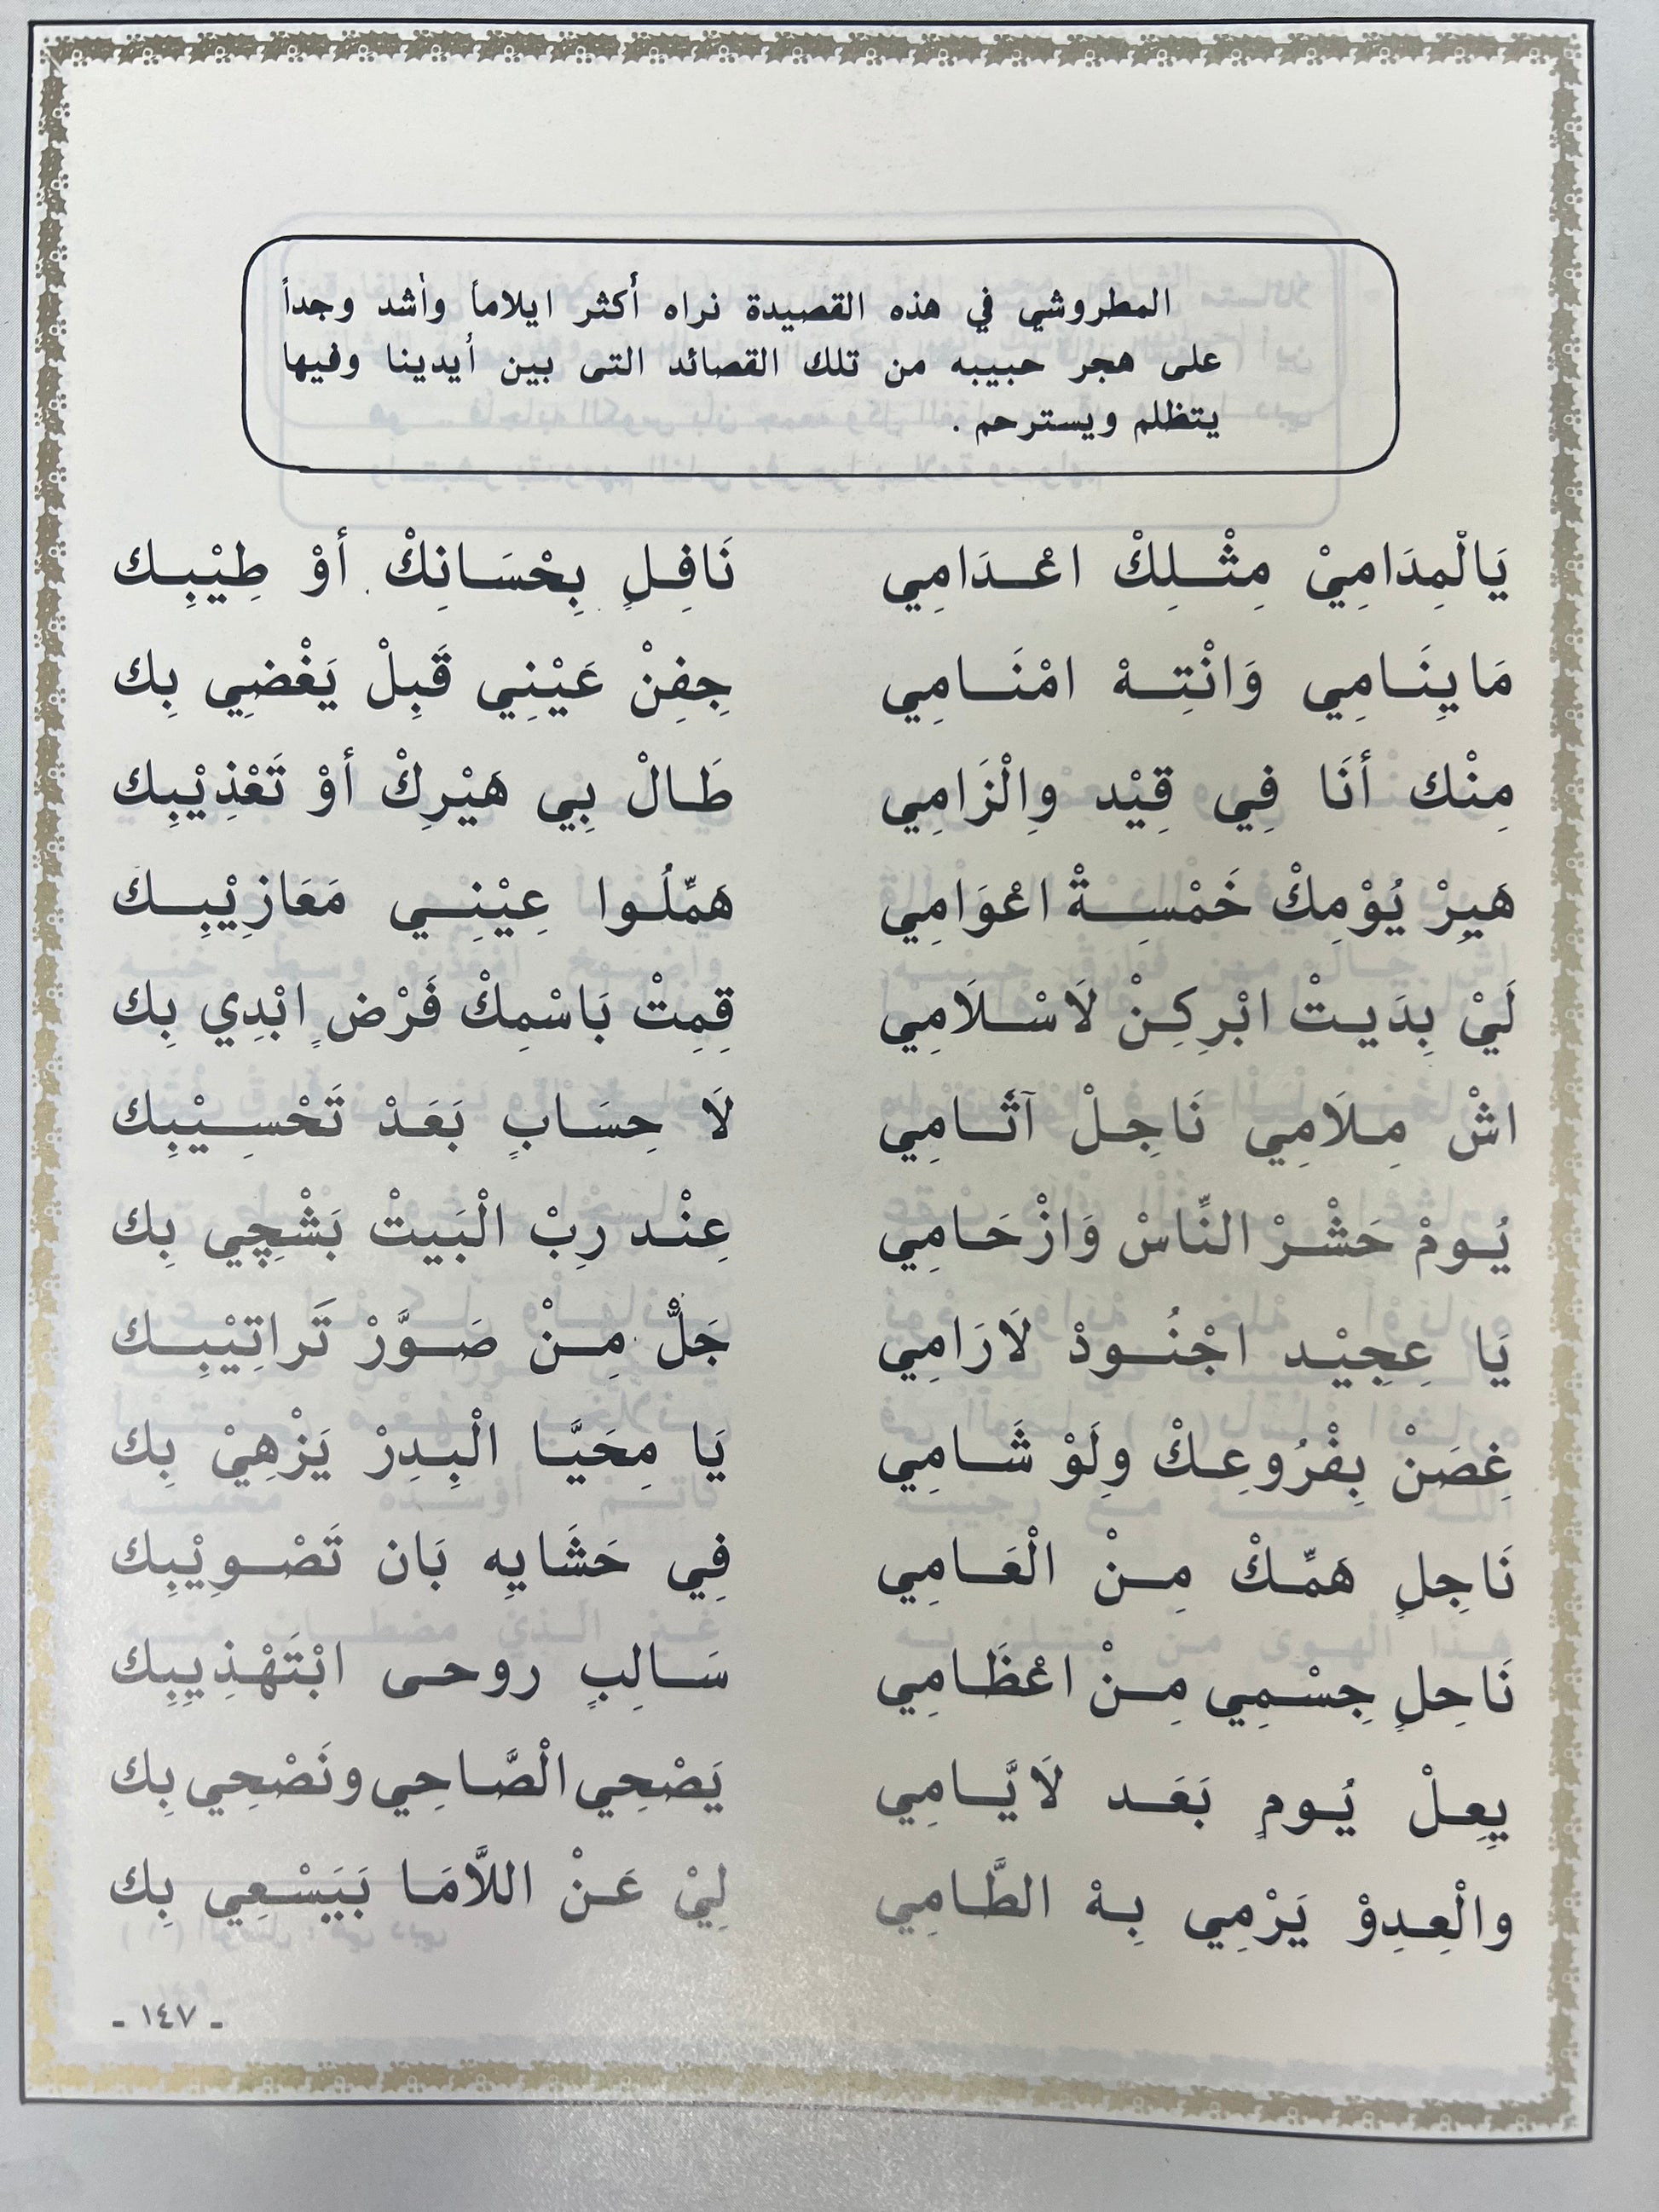 المطروشي في هذه القصيدة نراه أكثر ايلاماً وأشد وجداً
على هجر حبيبه من تلك القصائد التى بين أيدينا وفيها
يتظلم ويسترحم .
يَالْمِدَامِيْ مِثْلِكْ اعْدَامِي نَافِلٍ بِحْسَانِكْ أوْ طِيْبِك
مَا يِنَامِي وَانْتِهْ امْنَامِي جِفِنْ عَيْنِي قَبِلْ يَغْضِي بِك
مِنْك أنَا فِي قِيْد والْزَامِي طَالْ بِي هَيْرِكْ أوْ تَعْذِيْبِك
هَيِرْ يُوْمِكْ خَمْسِةْ اعْوَامِي هَمِّلُوا عِيْنِي مَعَازِيْبِك
لَيْ بِدَيتْ ابْرِكِنْ لَاسْلَامِي قِمِتْ بَاسْمِكْ فَرْضٍ ابْدِي بِك
اشْ مِلَامِي نَاجِلْ آثَامِي لَا حِسَابٍ بَعَدْ تَحْسِيْبِك
يُومْ حَشْرْ النِّاسْ وَازْحَامِي عِنْد رِبْ الْبَيتْ بَشْچِي بِك
يَا عِجِيْد اجْنُودْ لَارَامِي جَلّْ مِنْ صَوَّرْ تَراتِيْبِك
غِصَنْ بِفْرُوعِكْ ولَوْ شَامِي يَا مِحَيَّا الْبِدِرْ يَزْهِيْ بِك
نَاجِلٍ هَمِّكْ مِنْ الْعَامِي فِي حَشَايِه بَان تَصْوِيْبِك
نَاحِلٍ جِسْمِي مِنْ اعْظَامِي سَالِبٍ روحى ابْتَهْذِيبِك
يِعِلْ يُومٍ بَعَد لَايَّامِي يَصْحِي الْصَّاحِي ونَصْحِي بِك
والْعِدِوْ يَرْمِي بِهْ الطَّامِي لِيْ عَنْ اللاَّمَا بَيَسْعِي بِك
- ١٤٧ -